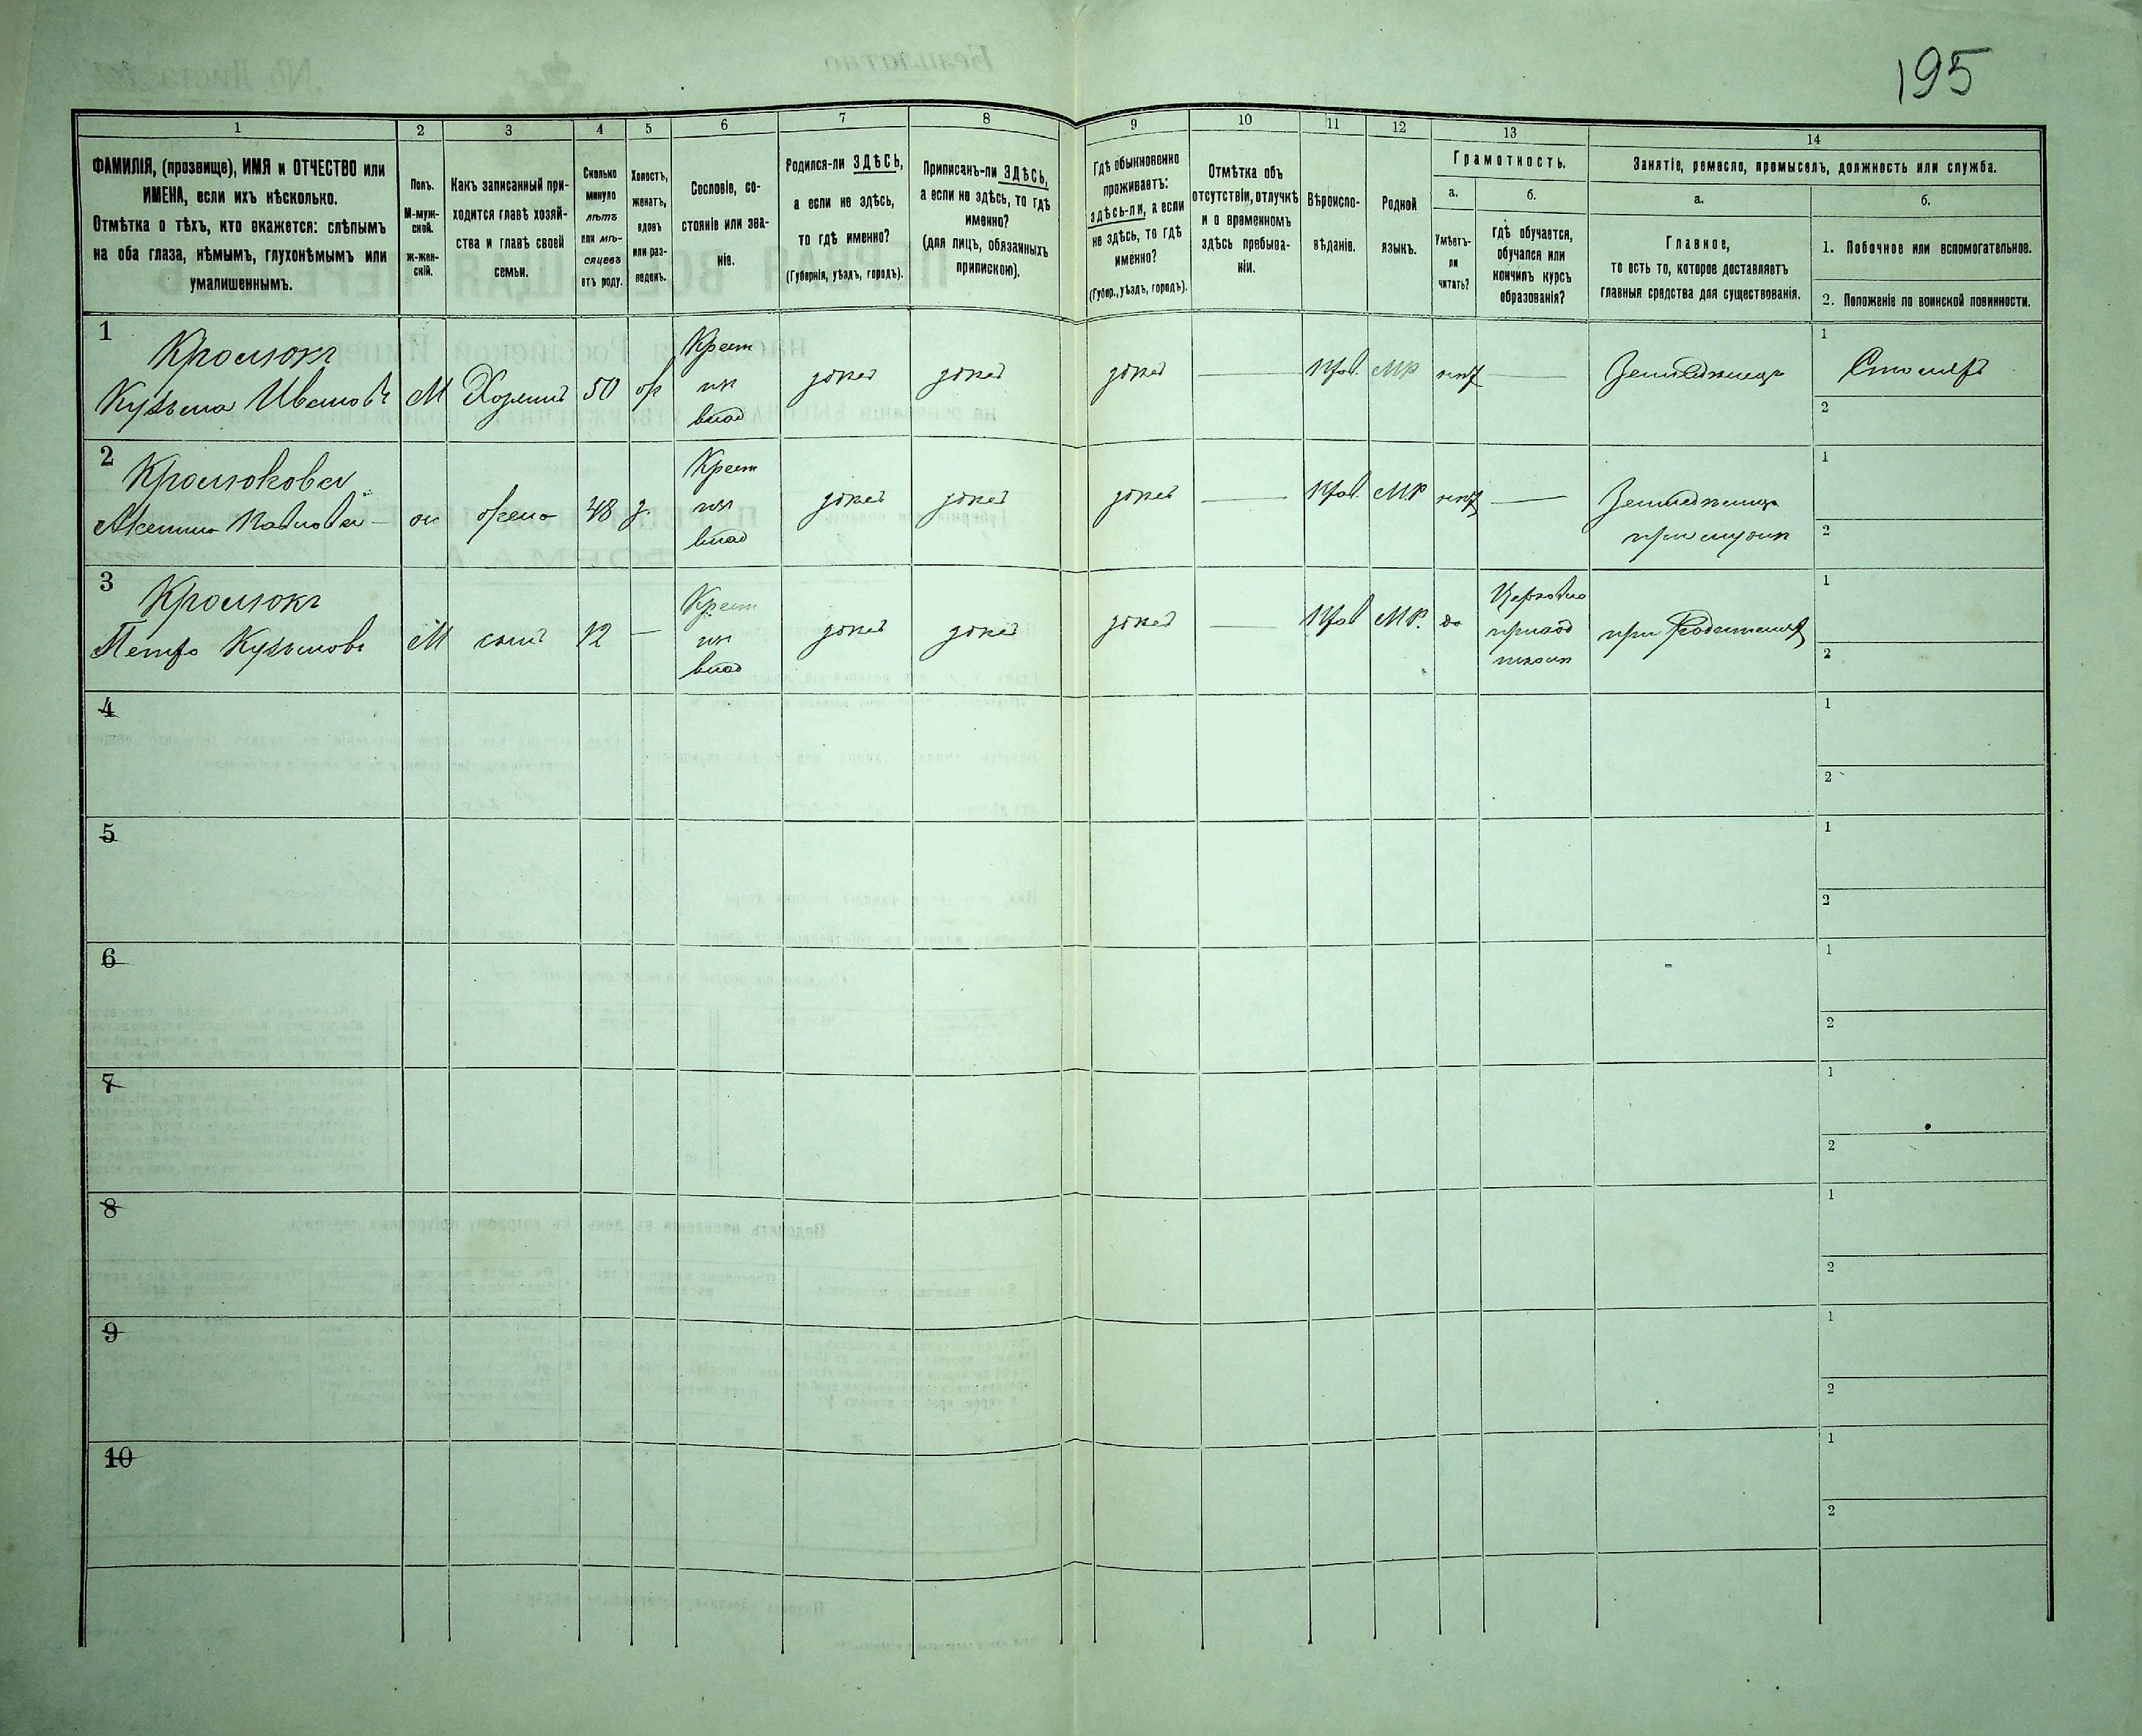 195
1
2
3
4
5
6
7
8
9
10
11
12
13
14
ФАМИЛІЯ, (прозвище), ИМЯ и ОТЧЕСТВО или
ИМЕНА, если ихъ нѣсколько.
Отмѣтка о тѣхъ, кто окажется: слѣпымъ
на оба глаза, нѣмымъ, глухонѣмымъ или
умалишеннымъ.
Полъ.
М-муж-
ской.
ж-жен-
скій.
Какъ записанный при-
ходится главѣ хозяй-
ства и главѣ своей
семьи.
Сколько
минуло
лѣтъ
или мѣ-
сяцевъ
отъ роду.
Холостъ,
женатъ,
вдовъ
или раз-
веденъ.
Сословіе, со-
стояніе или зва-
ніе.
Родился-ли ЗДѢСЬ,
а если не здѣсь,
то гдѣ именно?
(Губернія, уѣздъ, городъ).
Приписанъ-ли ЗДѢСЬ,
а если не здѣсь, то гдѣ
именно?
(для лицъ, обязанныхъ
припискою).
Гдѣ обыкновенно
проживаетъ:
здѣсь-ли, а если
не здѣсь, то гдѣ
именно?
(Губер., уѣздъ, городъ).
Отмѣтка объ
отсутствіи, отлучкѣ
и о временномъ
здѣсь пребыва-
ніи.
Вѣроиспо-
вѣданіе.
Родной
языкъ.
Грамотность.
а.
Умѣетъ-
ли
читать?
б.
гдѣ обучается,
обучался или
кончилъ курсъ
образованія?
Занятіе, ремесло, промыселъ, должность или служба.
а.
Главное,
то есть то, которое доставляетъ
главныя средства для существованія.
б.
1. Побочное или вспомогательное.
2. Положеніе по воинской повинности.
1
Кузьма Ивановъ
М
Хозяинъ
50
Крест
влад
здѣсь
здѣсь
здѣсь
Прав.
МР
нѣтъ
Земледѣлецъ
1
Столяръ
2
2
Павлова
жена
48
Крест
влад
здѣсь
здѣсь
здѣсь
Прав.
МР
нѣтъ
при мужѣ
1
2
3
Петро Кузьмовъ
М
сынъ
12
—
Крест
влад
здѣсь
здѣсь
здѣсь
Прав
МР.
да
Церковно
приход
школѣ
при родителяхъ
1
2
4
1
2
5
1
2
6
1
2
7
1
2
8
1
2
9
1
2
10
1
2